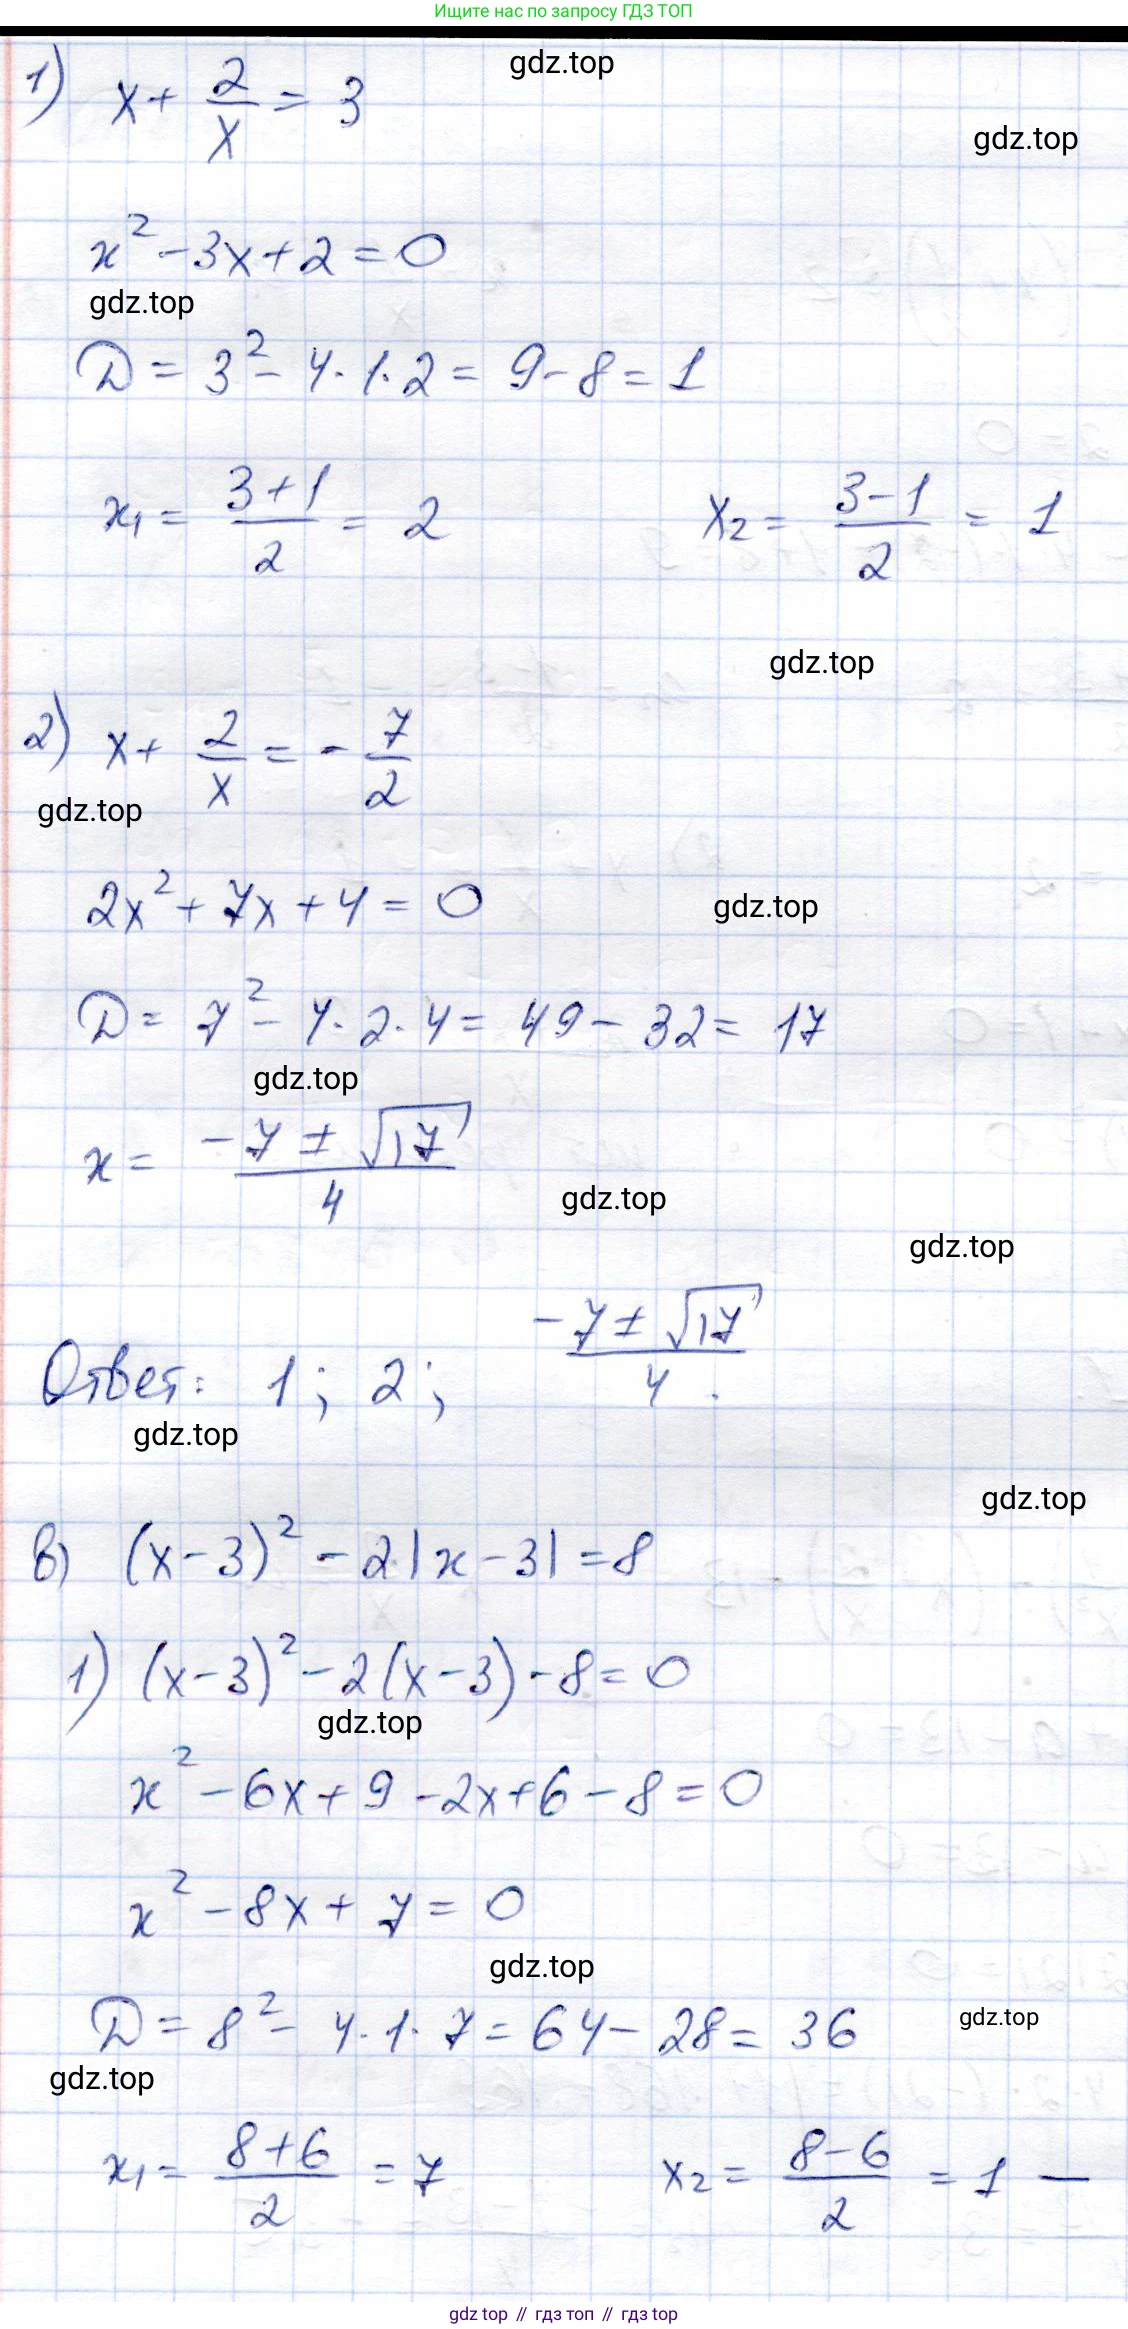 Ищите нас по запросу ГДЗ ТОП
gdz.top
1) x + 2/x = 3
gdz.top
x² - 3x + 2 = 0
gdz.top
D = 3² - 4·1·2 = 9 - 8 = 1
x₁ = (3+1)/2 = 2 x₂ = (3-1)/2 = 1
gdz.top
2) x + 2/x = - 7/2
gdz.top
2x² + 7x + 4 = 0
gdz.top
D = 7² - 4·2·4 = 49 - 32 = 17
gdz.top
x = (-7 ± √17)/4
gdz.top
gdz.top
Ответ: 1; 2; (-7 ± √17)/4.
gdz.top
gdz.top
в) (x-3)² - 2|x-3| = 8
1) (x-3)² - 2(x-3) - 8 = 0
gdz.top
x² - 6x + 9 - 2x + 6 - 8 = 0
x² - 8x + 7 = 0
gdz.top
D = 8² - 4·1·7 = 64 - 28 = 36
gdz.top
gdz.top
x₁ = (8+6)/2 = 7 x₂ = (8-6)/2 = 1 —
gdz top // гдз топ // gdz top